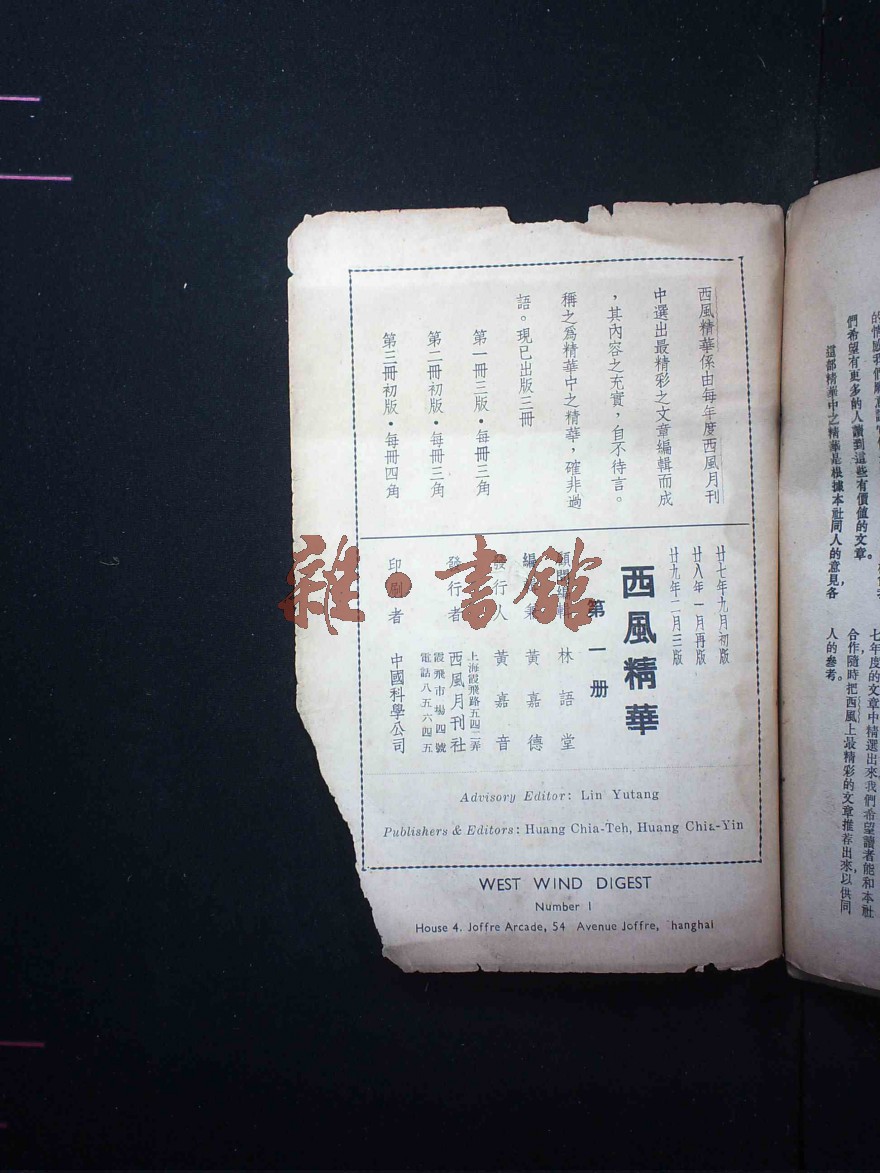 西風精華係由每年度西風月刊
中選出最精彩之文章編輯而成
，其內容之充實，自不待言。
稱之爲精華中之精華，確非過
語。現已出版三冊
第一冊三版•每冊三角
第二冊初版•每冊三角
第三冊初版•每冊四角
廿七年九月初版
廿八年一月再版
廿九年二月三版
西風精華
第一册
顧問編輯 林語堂
編 兼 黃嘉德
發行人 黃嘉音
發行者 西風月刊社
上海霞飛路五四二弄
霞飛市場四號
電話八五六四五
印刷者 中國科學公司
Advisory Editor: Lin Yutang
Publishers & Editors: Huang Chia-Teh, Huang Chia-Yin
WEST WIND DIGEST
Number 1
House 4. Joffre Arcade, 54 Avenue Joffre, hanghai
雜•書館
們希望有更多的人讀到這些有價値的文章。
這部精華中之精華是根據本社同人的意見，各
七年度的文章中精選出來我們希望讀者能和本社
合作隨時把西風上最精彩的文章推荐出來以供同
人的參考。